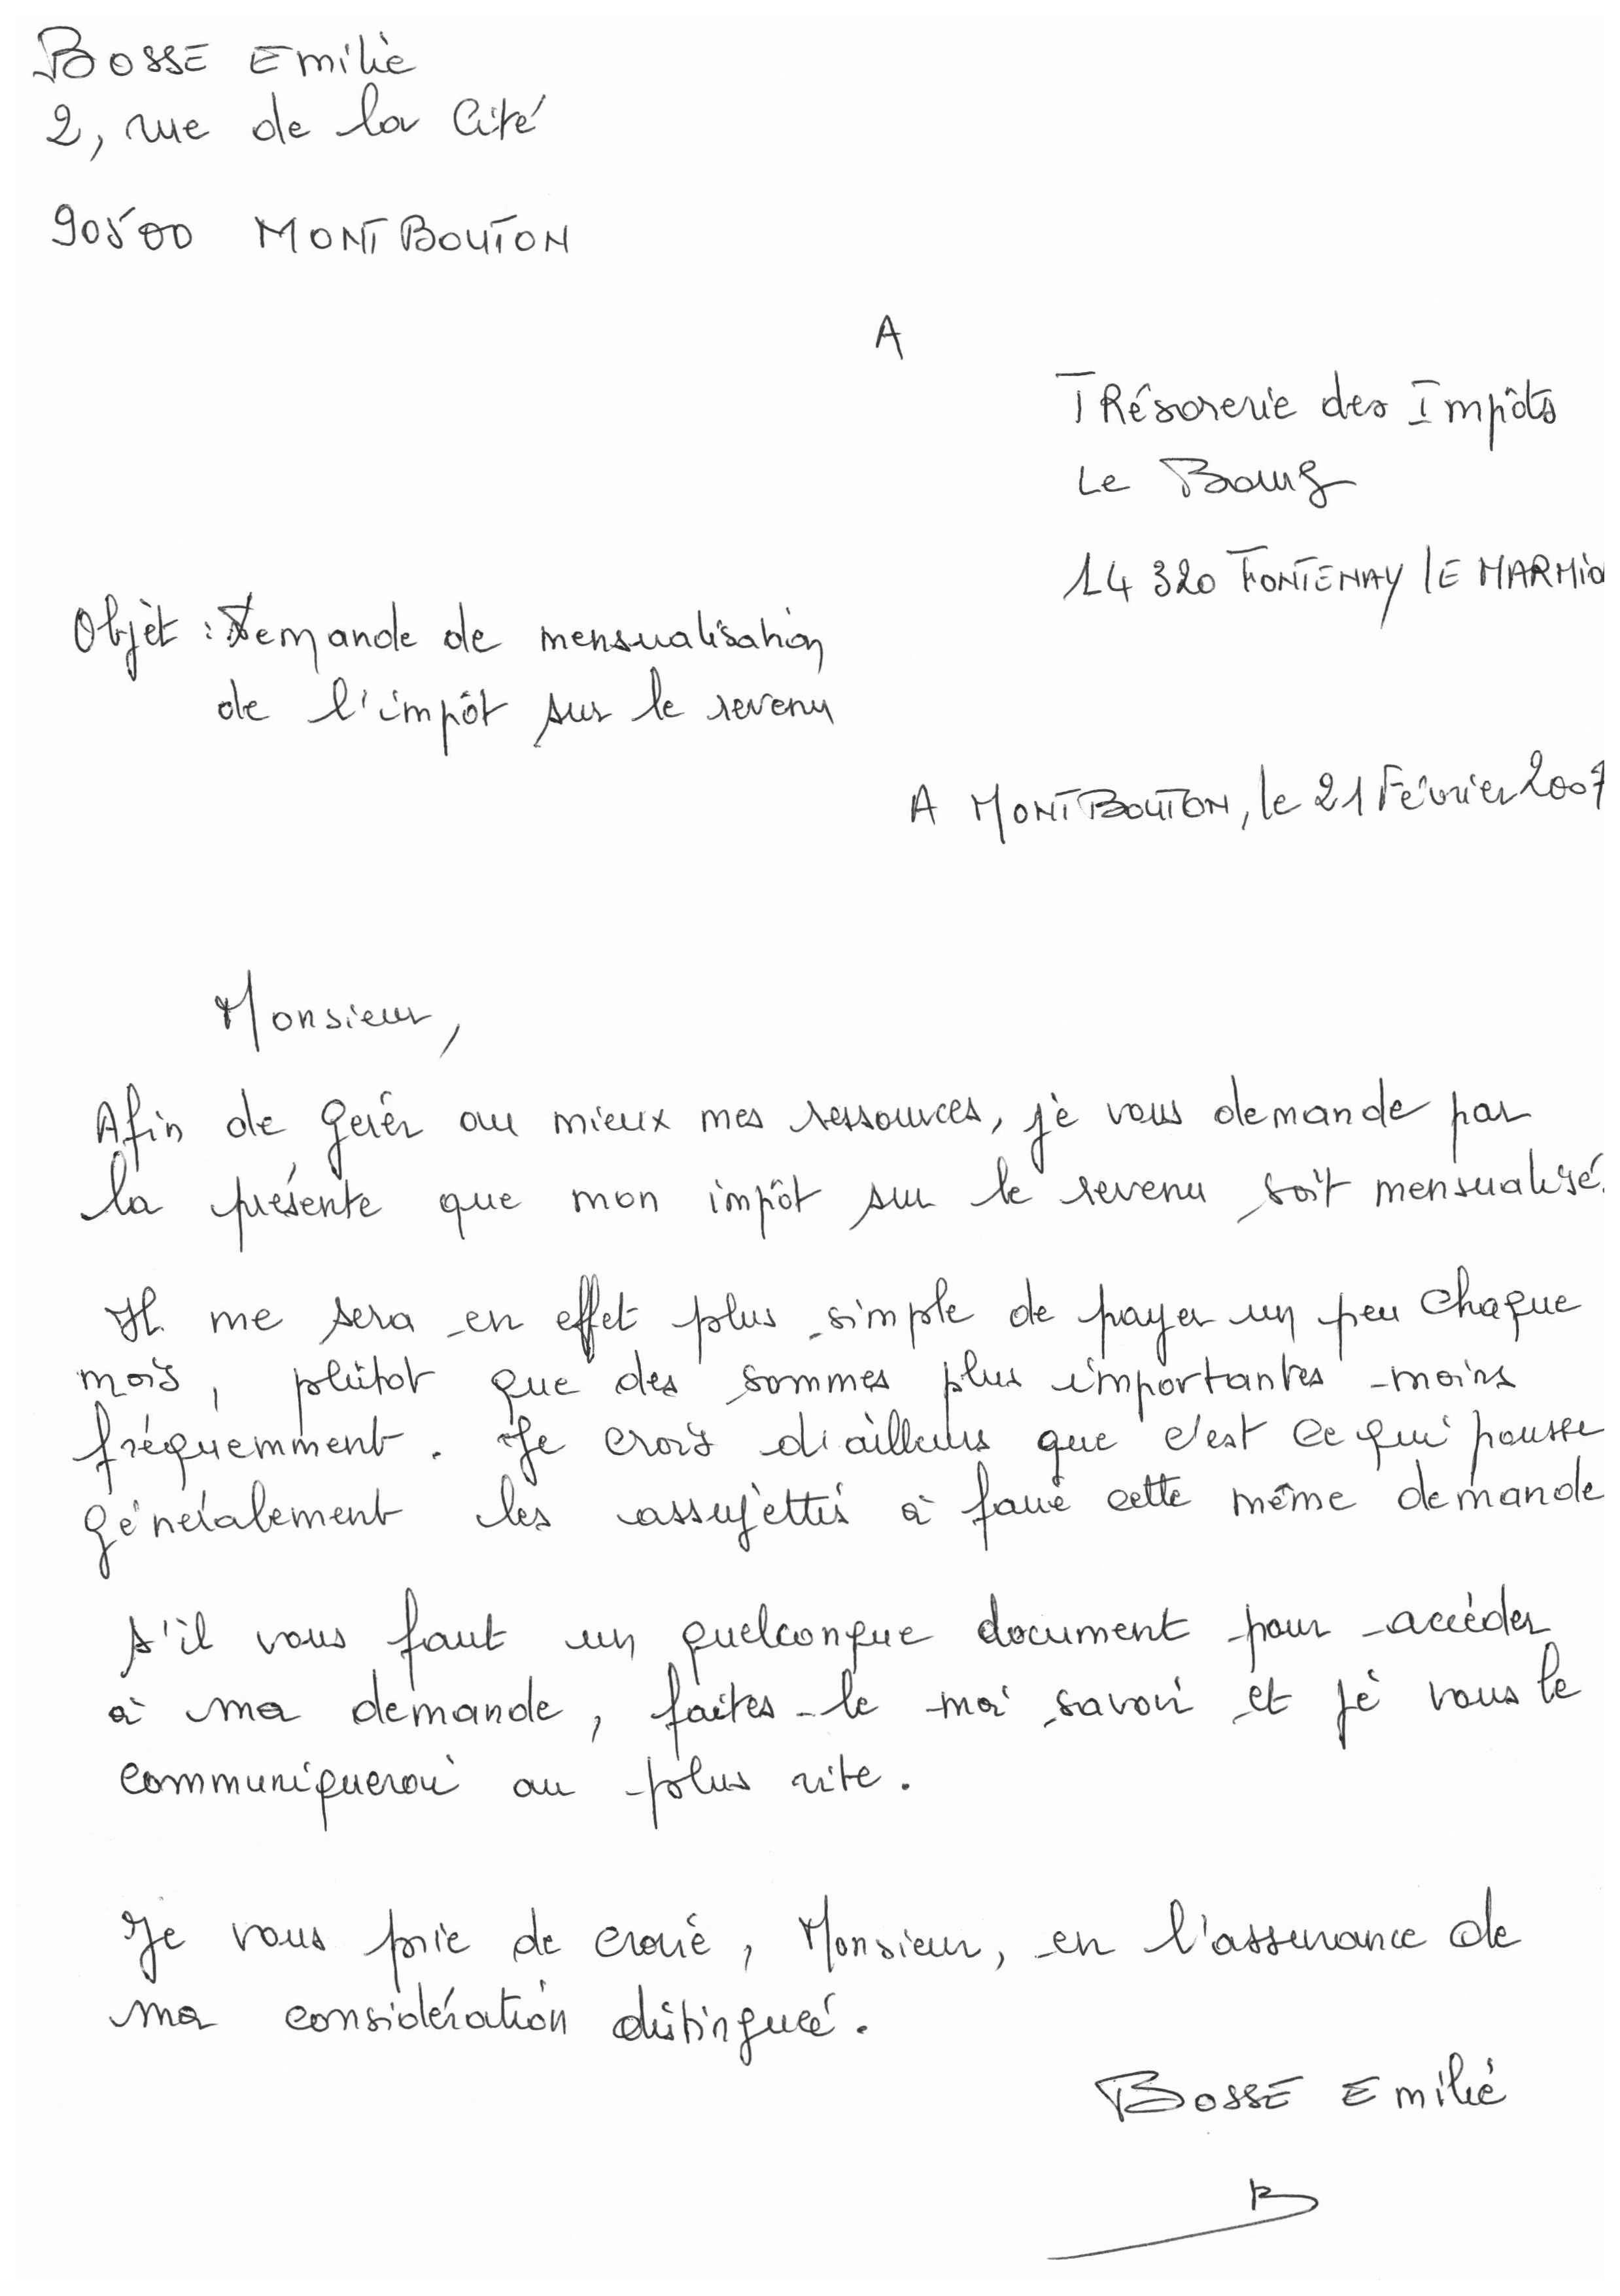 BOSSE Emilie
2, rue de la Cité
90500 MONTBOUTON
A
TRésorerie des Impôts
Le Bourg
14 320 FONTENAY LE MARMIO
Objet : Demande de mensualisation
de l'impôt sur le revenu
A MONTBOUTON, le 21 Février 2007
Monsieur,
Afin de gérer au mieux mes ressources, je vous demande par
la présente que mon impôt sur le revenu soit mensualisé.
Il me sera en effet plus simple de payer un peu chaque
mois, plûtot que des sommes plus importantes moins
fréquemment. Je crois d'ailleurs que c'est ce qui pousse
généralement les assujettis à faire cette même demande
S'il vous faut un quelconque document pour accéder
à ma demande, faites-le moi savoir et je vous le
communiquerai au plus vite.
Je vous prie de croire, Monsieur, en l'assurance de
ma considération distinguée.
BOSSE Emilie
B